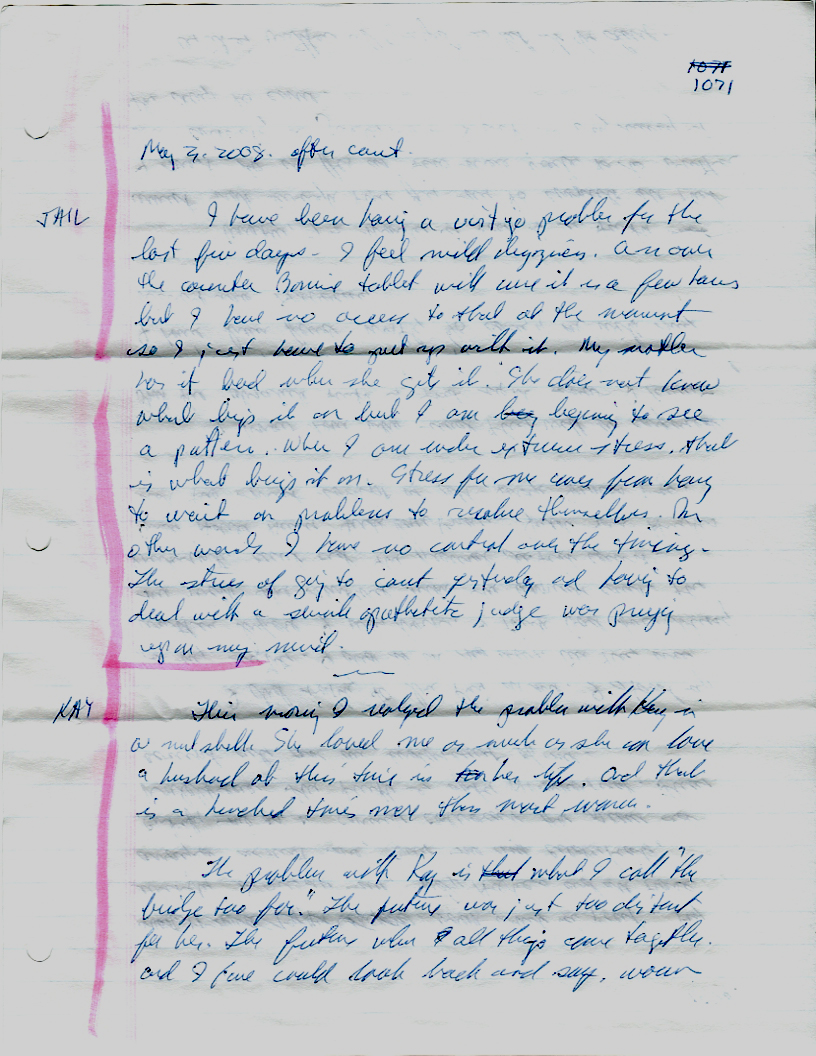 1071
1071
May 2, 2008. after court.
JAIL
I have been having a vertigo problem for the
last five days - I feel mild dizziness. An over
the counter Bonine tablet will cure it in a few hours
but I have no access to that at the moment
so I just have to put up with it. My mother
has it bad when she gets it. She does not know
what brings it on but I am beg begining to see
a pattern. When I am under extreme stress. that
is what brings it on. Stress for me comes from having
to wait on problems to resolve themselves. In
other words I have no control over the timing.
The stress of going to court yesterday and having to
deal with a apathetic judge was preying
upon my mind.
KAY
This morning I realized the problem with Kay in
a nutshell. She loved me as much as she can love
a husband at this time in her life. And that
is a hundred times more than most women.
The problem with Kay is that what I call "the
bridge too far." The future was just too distant
for her. The future when all things come together.
and I could look back and say, woman